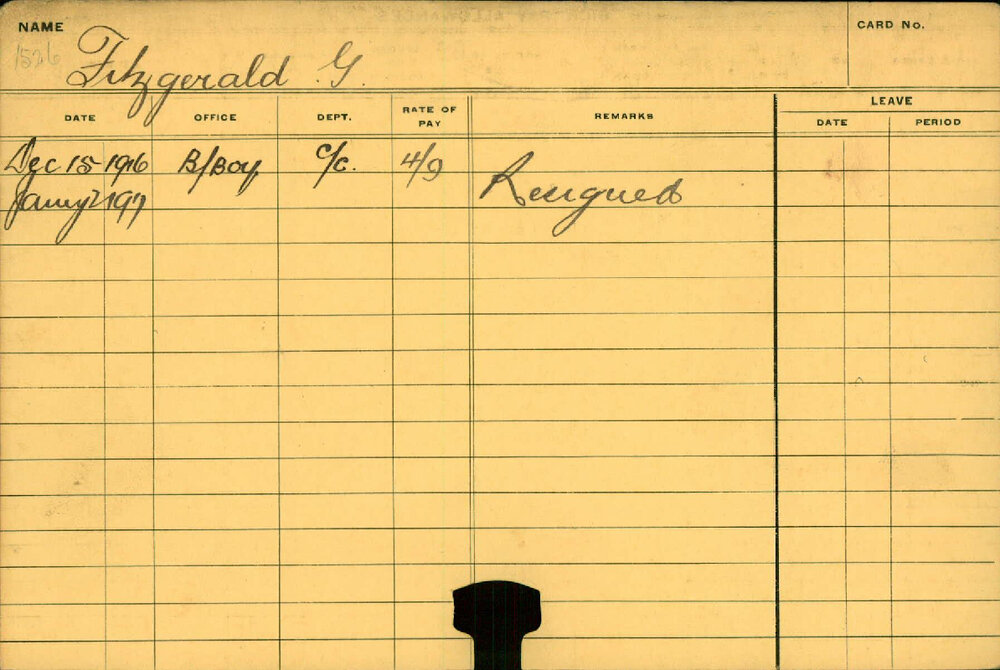 NAME
CARD No.
1526
Fitzgerald G.
DATE OFFICE DEPT. RATE OF PAY REMARKS LEAVE
DATE PERIOD
Dec 15 1916 B/Boy. C/C. 4/9
Jany 2 1917 Resigned